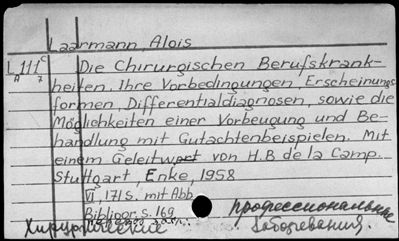 Laarmann, Alois
L111c Die Chirurgischen Berufskrank-
A 7 heiten. Ihre Vorbedingungen, Erscheinungs
formen, Differentialdiagnosen, sowie die
Möglichkeiten einer Vorbeugung und Be-
handlung mit Gutachtenbeispielen. Mit
einem Geleitwort von H.B de la Camp.
Stuttgart, Enke, 1958
VI, 171 S. mit Abb
Bibliogr. s. 169
Хирургические профессиональные
заболевания.